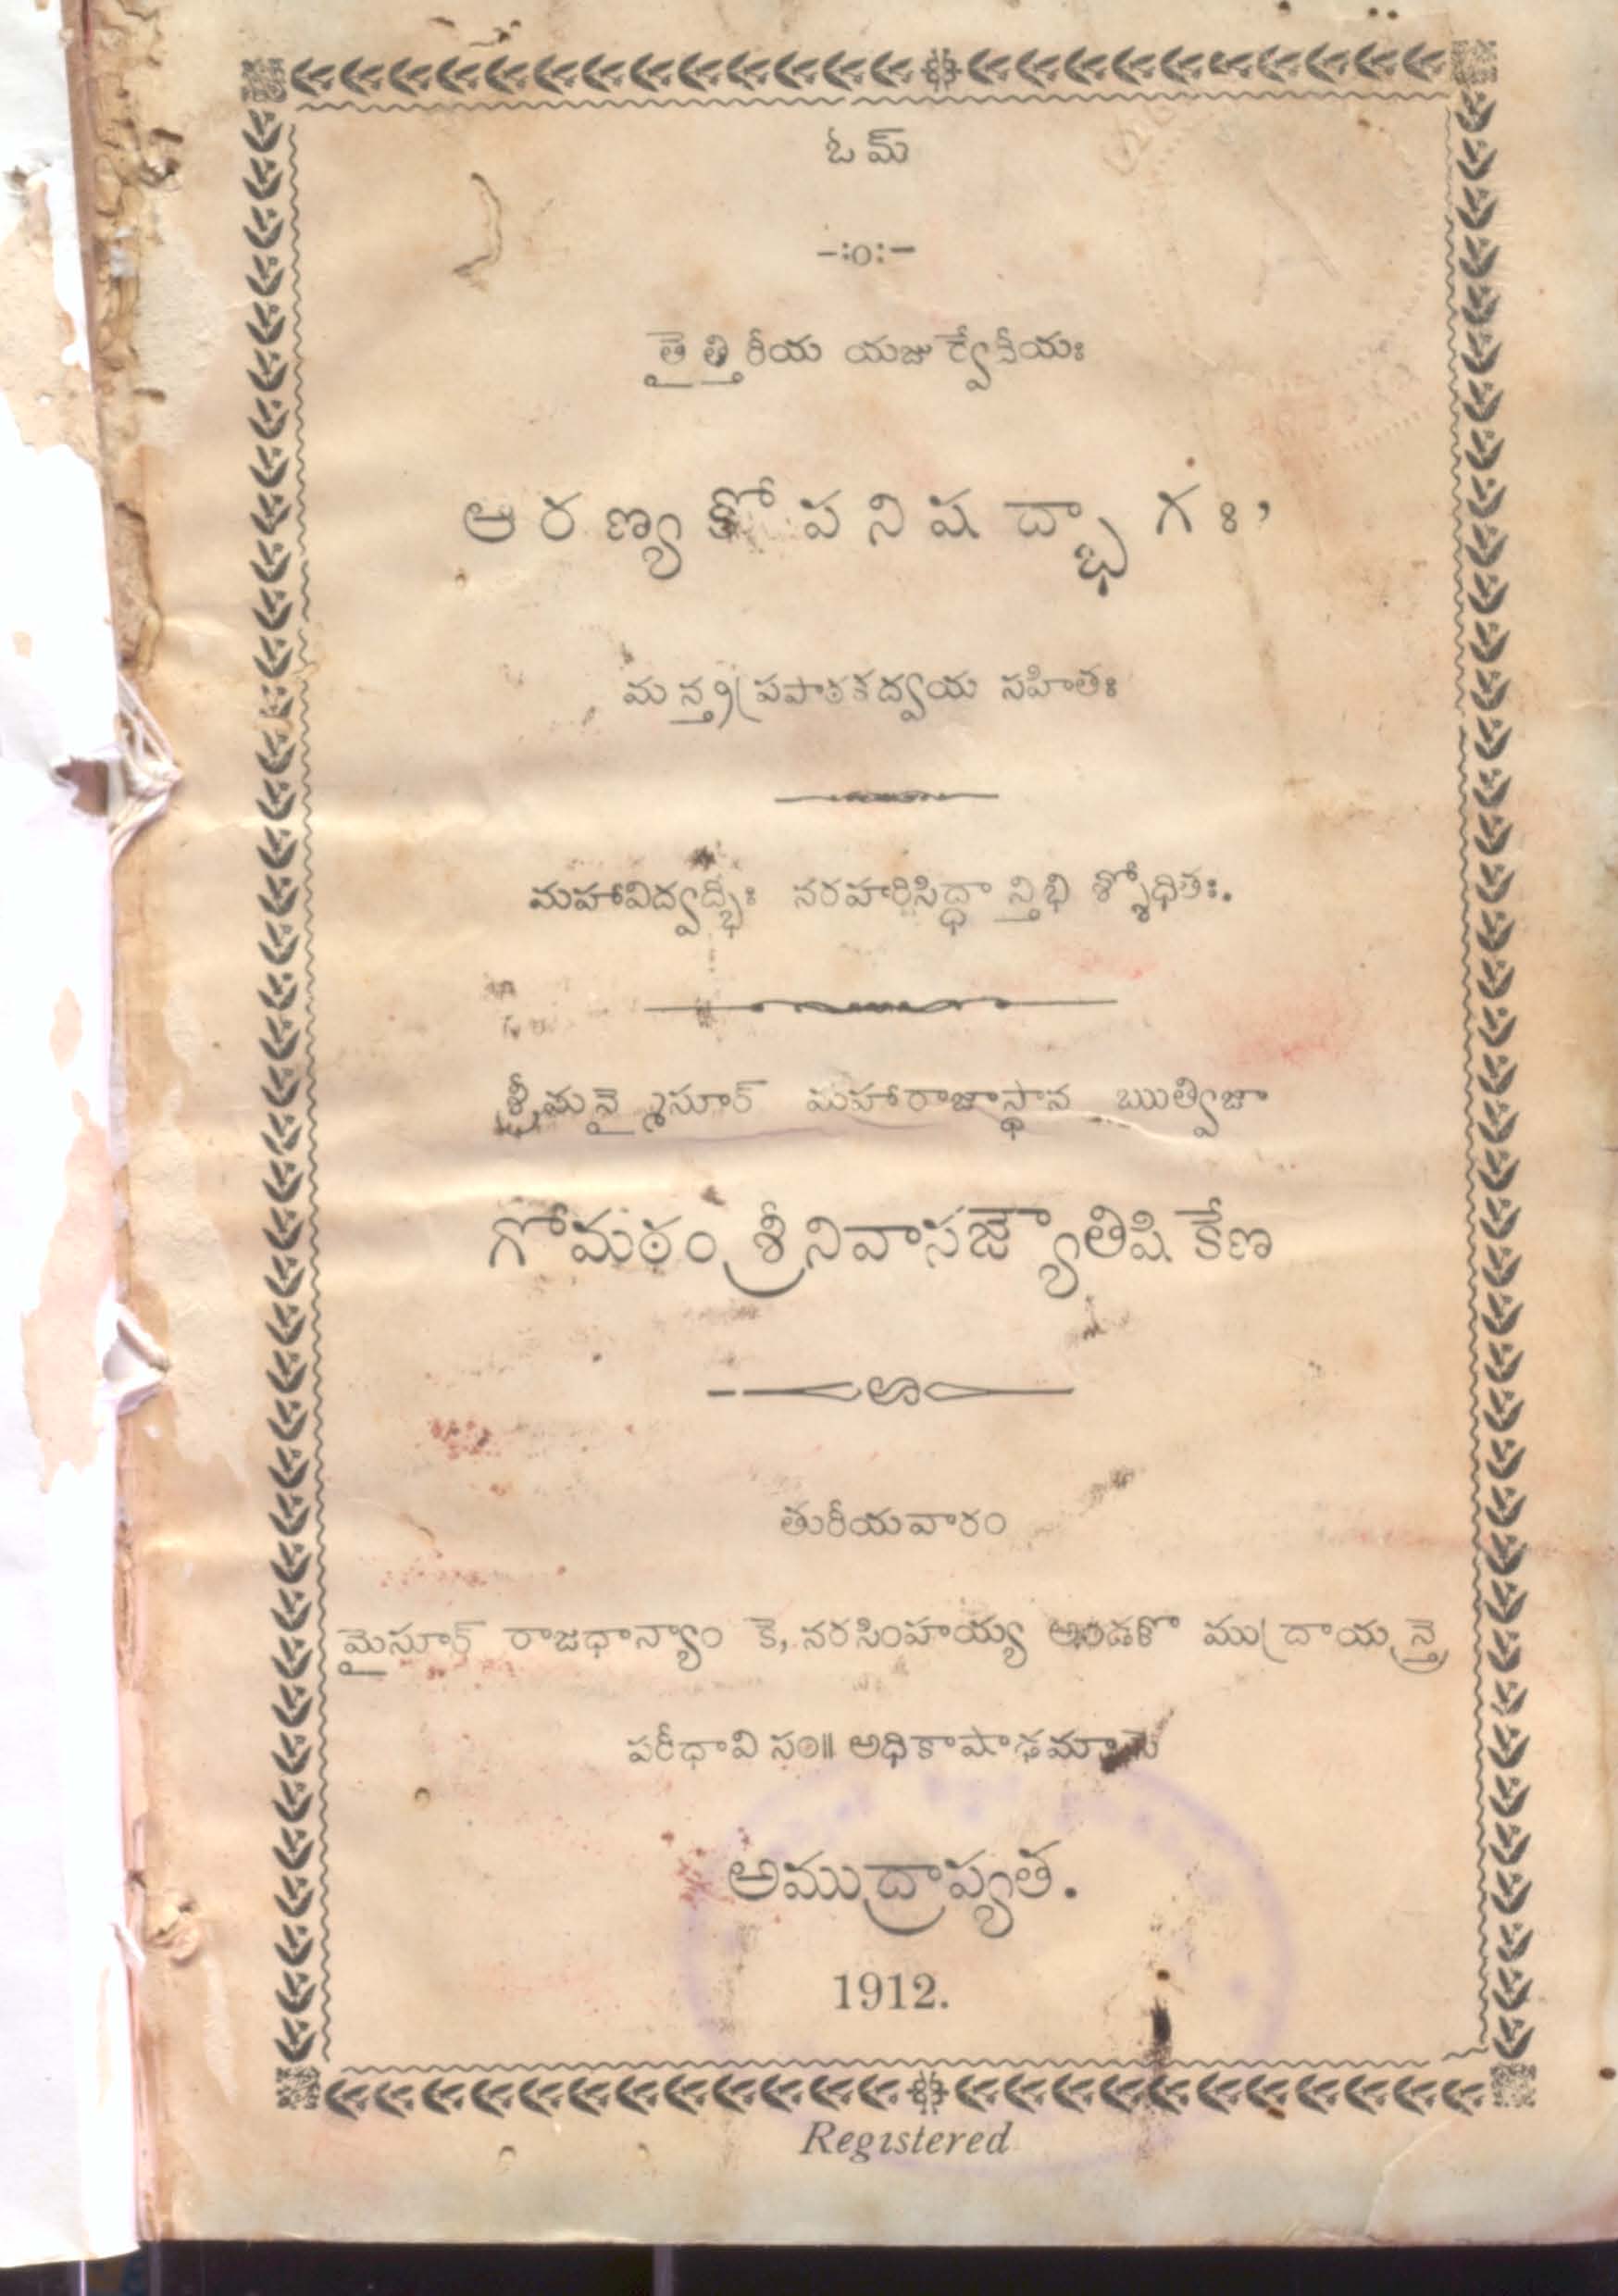 ఓమ్
-:o:-
తైత్తిరీయ యజుర్వేకీయః
ఆరణ్యకోపనిషద్భాగః,
మన్త్రప్రపాఠకద్వయ సహితః
మహావిద్వద్భిః నరహరిసిద్ధాన్తిభి శ్శోధితః.
శ్రీమన్మైసూర్ మహారాజాస్థాన ఋత్విజా
గోమఠం శ్రీనివాసజ్యౌతిషికేణ
తురీయవారం
మైసూర్ రాజధాన్యాం కె, నరసింహయ్య అండకో ముద్రాయన్త్రె
పరీధావి సం॥ అధికాషాఢమాసె
అముద్రాప్యత.
1912.
Registered